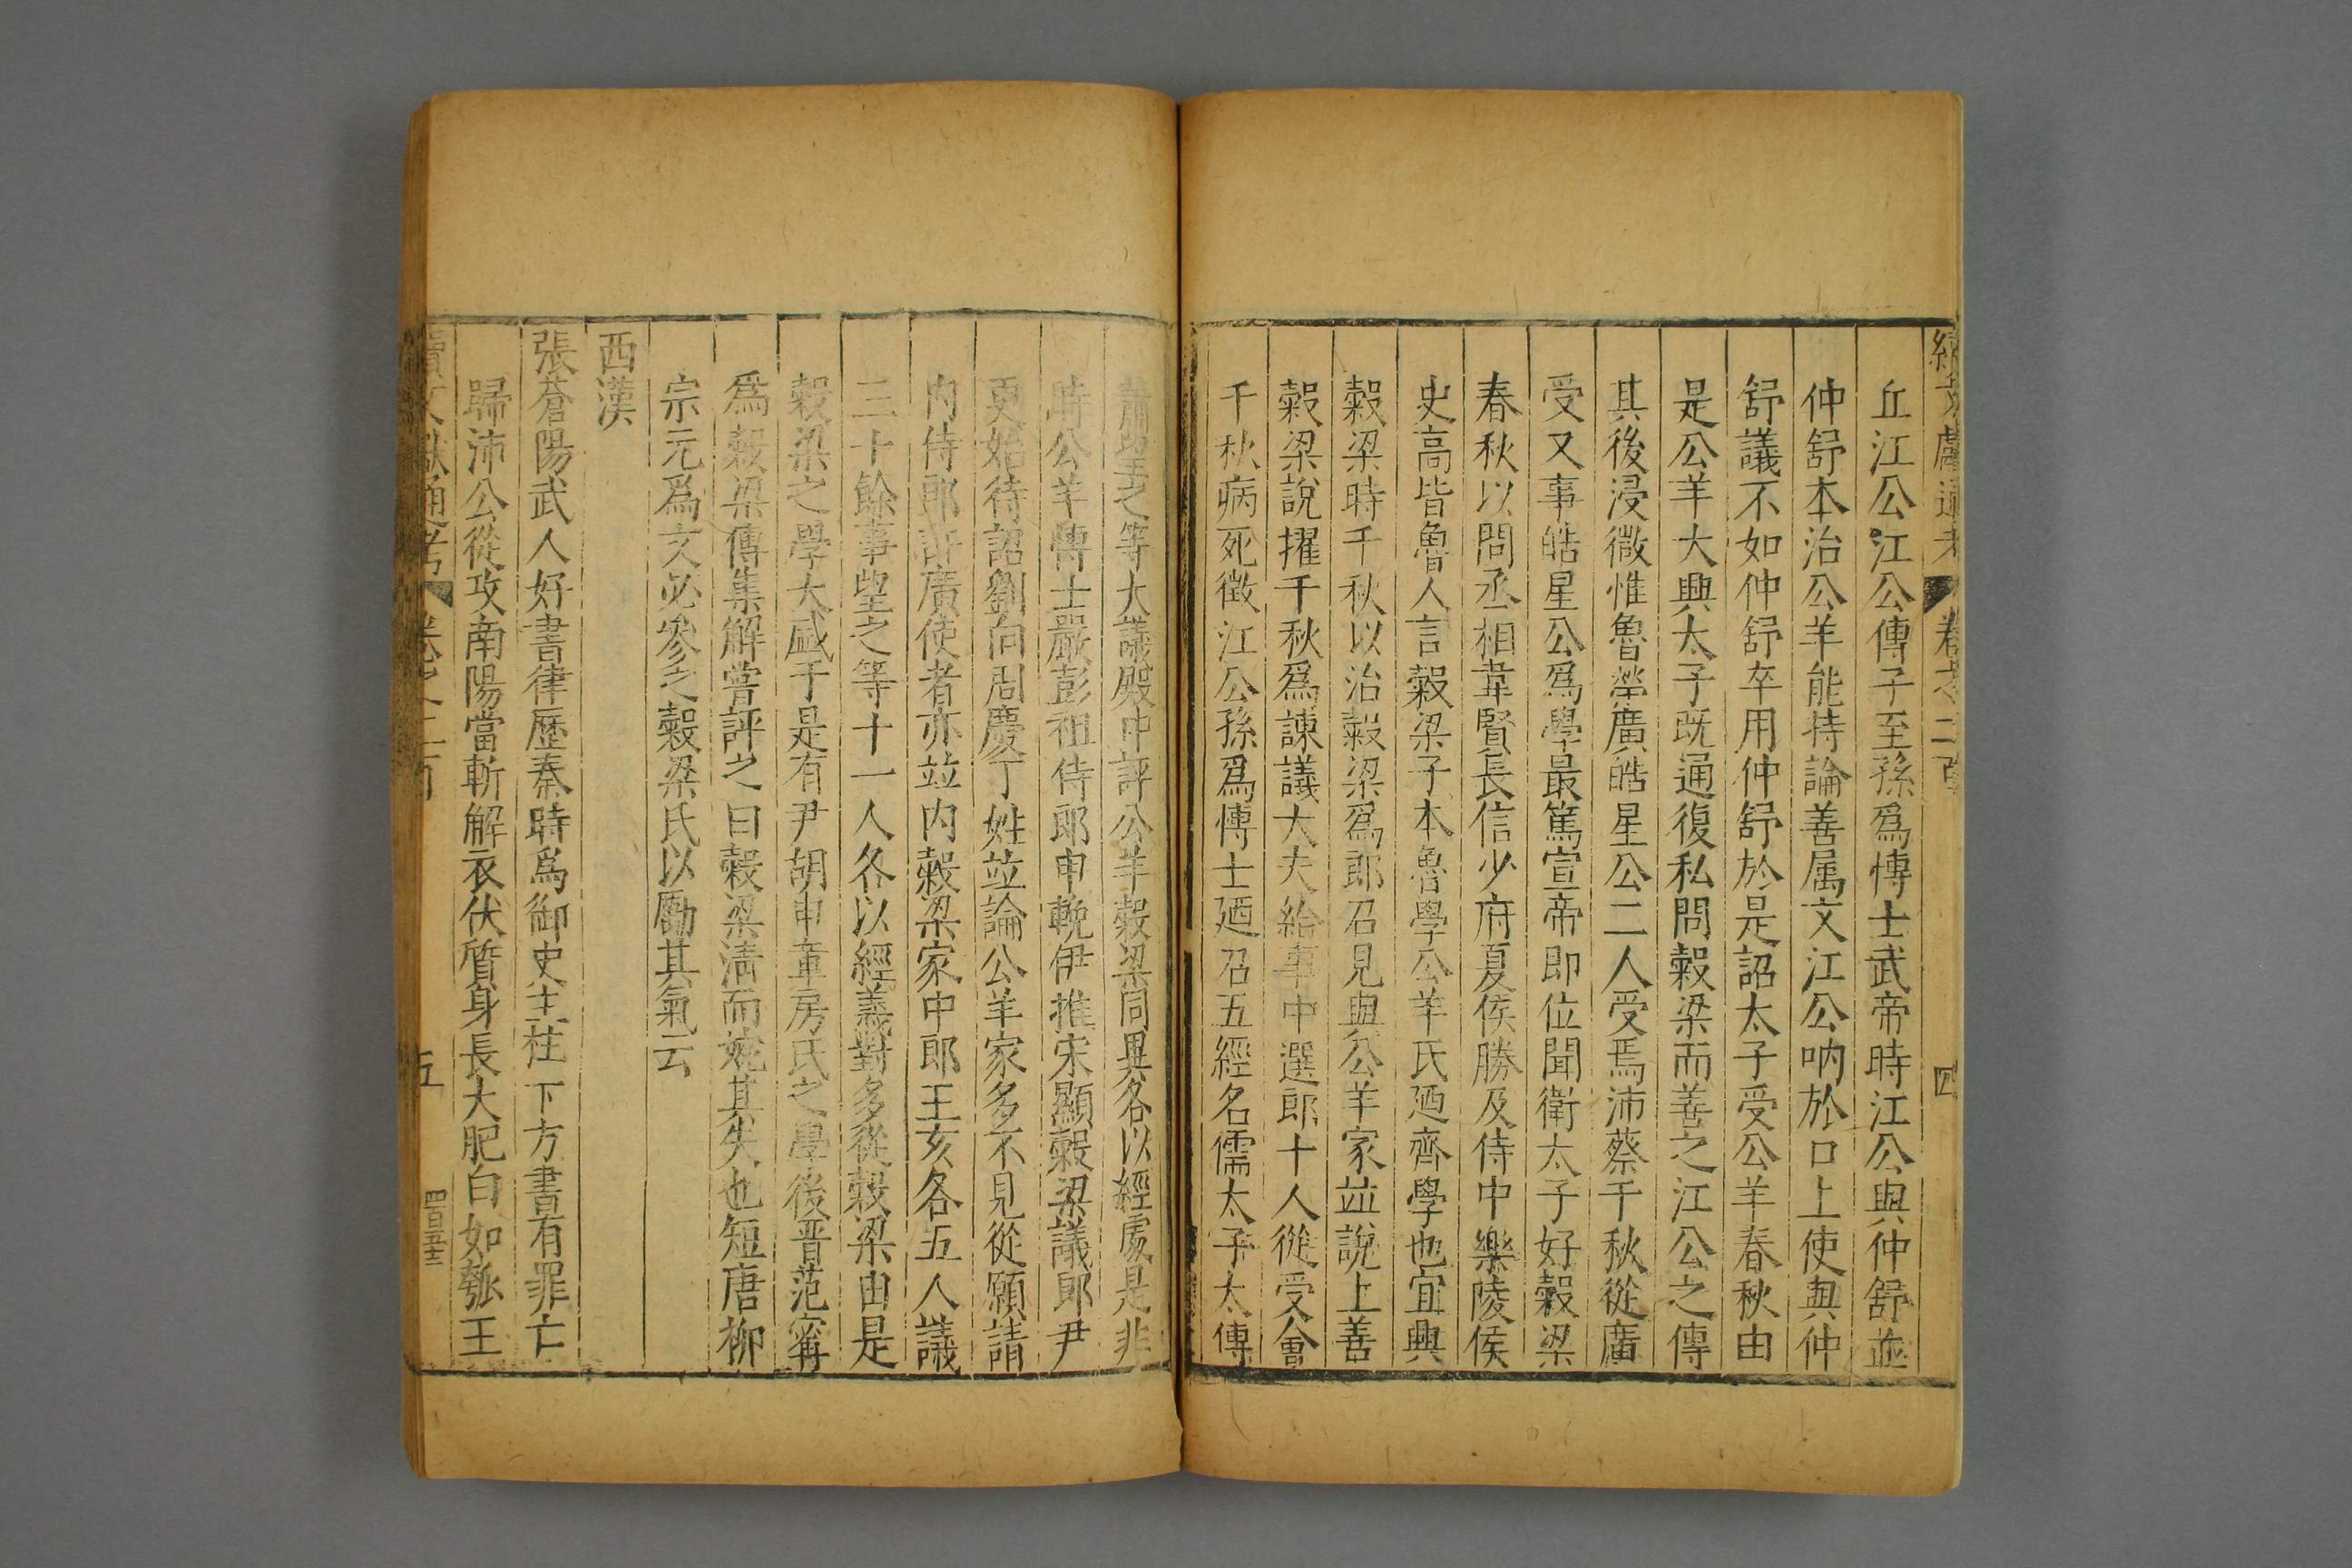 續文獻通考 卷之二百 四
丘江公江公傳子至孫爲博士武帝時江公與仲舒並
仲舒本治公羊能持論善属文江公呐於口上使與仲
舒議不如仲舒卒用仲舒於是詔太子受公羊春秋由
是公羊大興太子既通復私問榖梁而善之江公之傳
其後浸微惟魯榮廣皓星公二人受焉沛蔡千秋從廣
受又事皓星公爲學最篤宣帝即位聞衛太子好榖梁
春秋以問丞相韋賢長信少府夏侯勝及侍中樂陵侯
史高皆魯人言榖梁子本魯學公羊氏廼齊學也宜興
榖梁時千秋以治榖梁爲郎召見與公羊家並說上善
榖梁說擢千秋爲諫議大夫給事中選郎十人從受會
千秋病死徵江公孫爲博士廼召五經名儒太子太傅
蕭望之等大議殿中評公羊榖梁同異各以經處是非
時公羊博士嚴彭祖侍郎申輓伊推宋顯榖梁議郎尹
更始待詔劉向周慶丁姓並論公羊家多不見從願請
内侍郎許廣使者亦並内榖梁家中郎王亥各五人議
三十餘事望之等十一人各以經義對多從榖梁由是
榖梁之學大盛于是有尹胡申章房氏之學後晋范甯
爲榖梁傳集解嘗評之曰榖梁清而婉其失也短唐柳
宗元爲文必參之榖梁氏以勵其氣云
西漢
張蒼陽武人好書律歷秦時爲御史主柱下方書有罪亡
歸沛公從攻南陽當斬解衣伏質身長大肥白如瓠王
續文獻通考 卷之二百 五 四百五十三